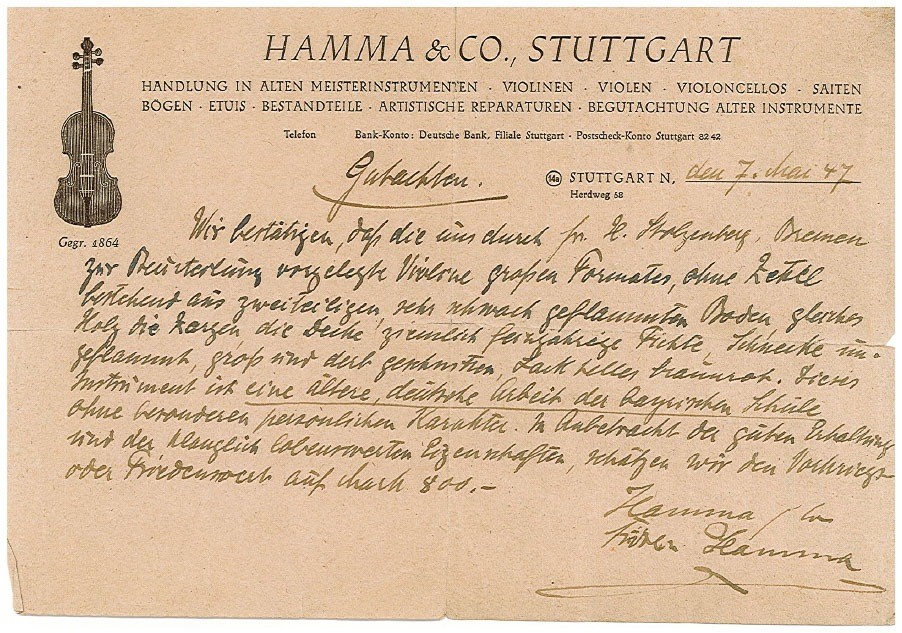 HAMMA & CO., STUTTGART
HANDLUNG IN ALTEN MEISTERINSTRUMENTEN · VIOLINEN · VIOLEN · VIOLONCELLOS · SAITEN
BÖGEN · ETUIS · BESTANDTEILE · ARTISTISCHE REPARATUREN · BEGUTACHTUNG ALTER INSTRUMENTE
Telefon Bank-Konto: Deutsche Bank, Filiale Stuttgart · Postscheck-Konto Stuttgart 8242
Gutachten.
14a STUTTGART N, den 7. Mai 47
Herdweg 58
Gegr. 1864
Wir bestätigen, daß die uns durch Fr. H. Stolzenberg, Bremen
zur Beurteilung vorgelegte Violine großen Formates, ohne Zettel
bestehend aus zweiteiligen, sehr schwach geflammten Boden, gleiches
Holz die Zargen, die Decke ziemlich feinjährige Fichte, Schnecke un-
geflammt, groß und derb geschnitten, Lack helles braunrot. Dieses
Instrument ist eine ältere, deutsche Arbeit der bayrischen Schule
ohne besonderen persönlichen Karakter. In Anbetracht der guten Erhaltung
und der klanglich lobenswerten Eigenschaften, schätzen wir den Vorkriegs-
oder Friedenswert auf Mark 800.-
Hamma & Co
Fridolin Hamma